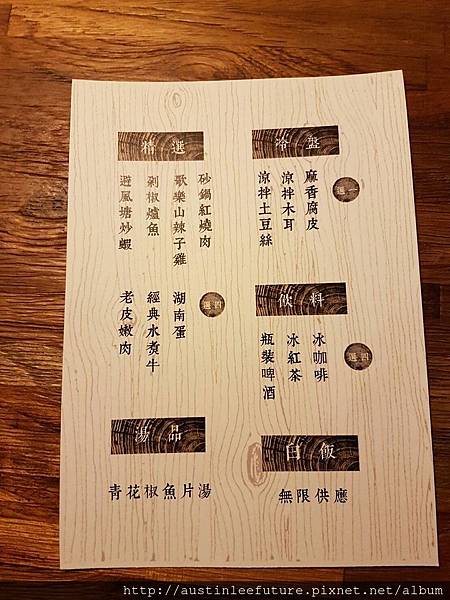 冷盤
選一
麻香腐皮
涼拌木耳
涼拌土豆絲
精選
砂鍋紅燒肉
歌樂山辣子雞
剁椒爐魚
避風塘炒蝦
選四
湖南蛋
經典水煮牛
老皮嫩肉
飲料
選四
冰咖啡
冰紅茶
瓶裝啤酒
湯品
青花椒魚片湯
白飯
無限供應
http://austinleefuture.pixnet.net/album